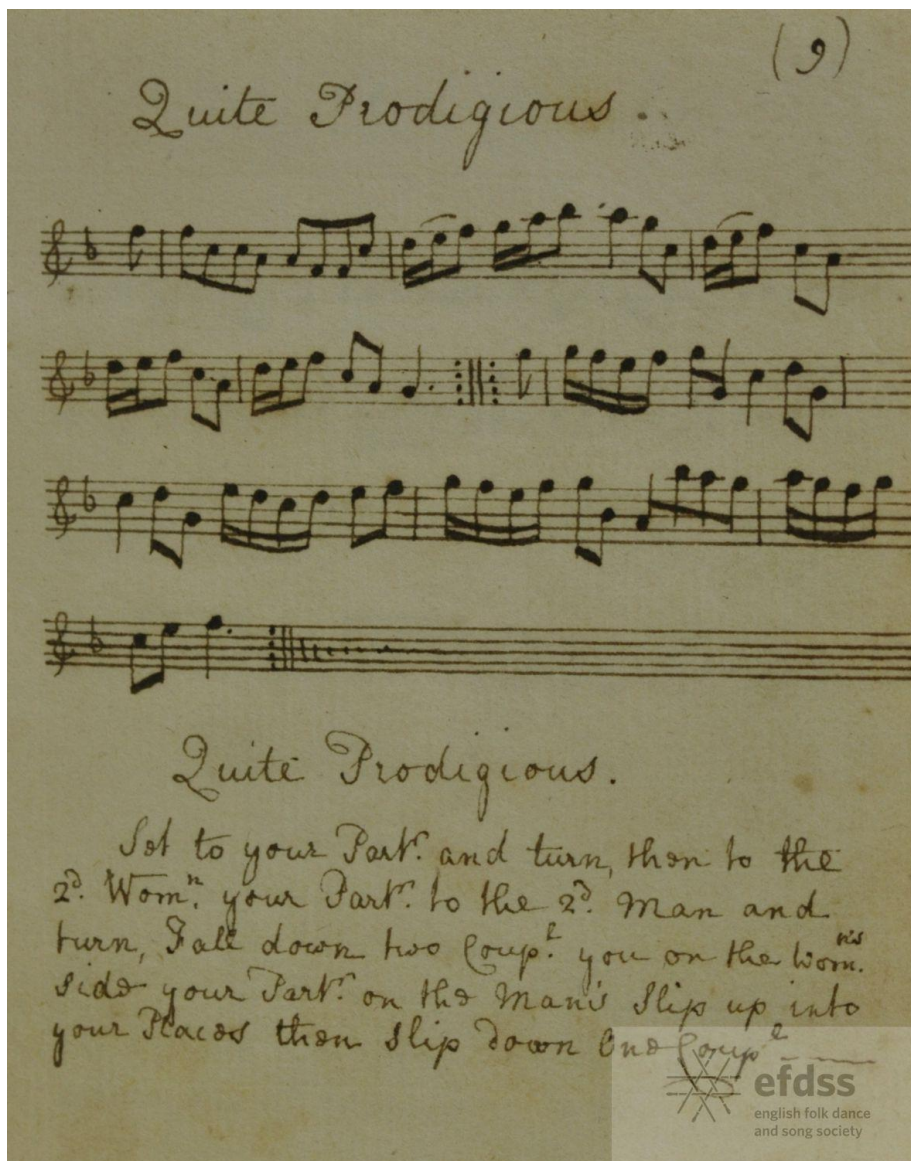 (9)
Quite Prodigious.
Quite Prodigious.
Set to your Partr. and turn, then to the
2d. Womn. your Partr. to the 2d. Man and
turn, Fall down two Coupl. you on the Womns.
side your Partr. on the Man's slip up into
your Places then slip down One Coupl
efdss
english folk dance
and song society